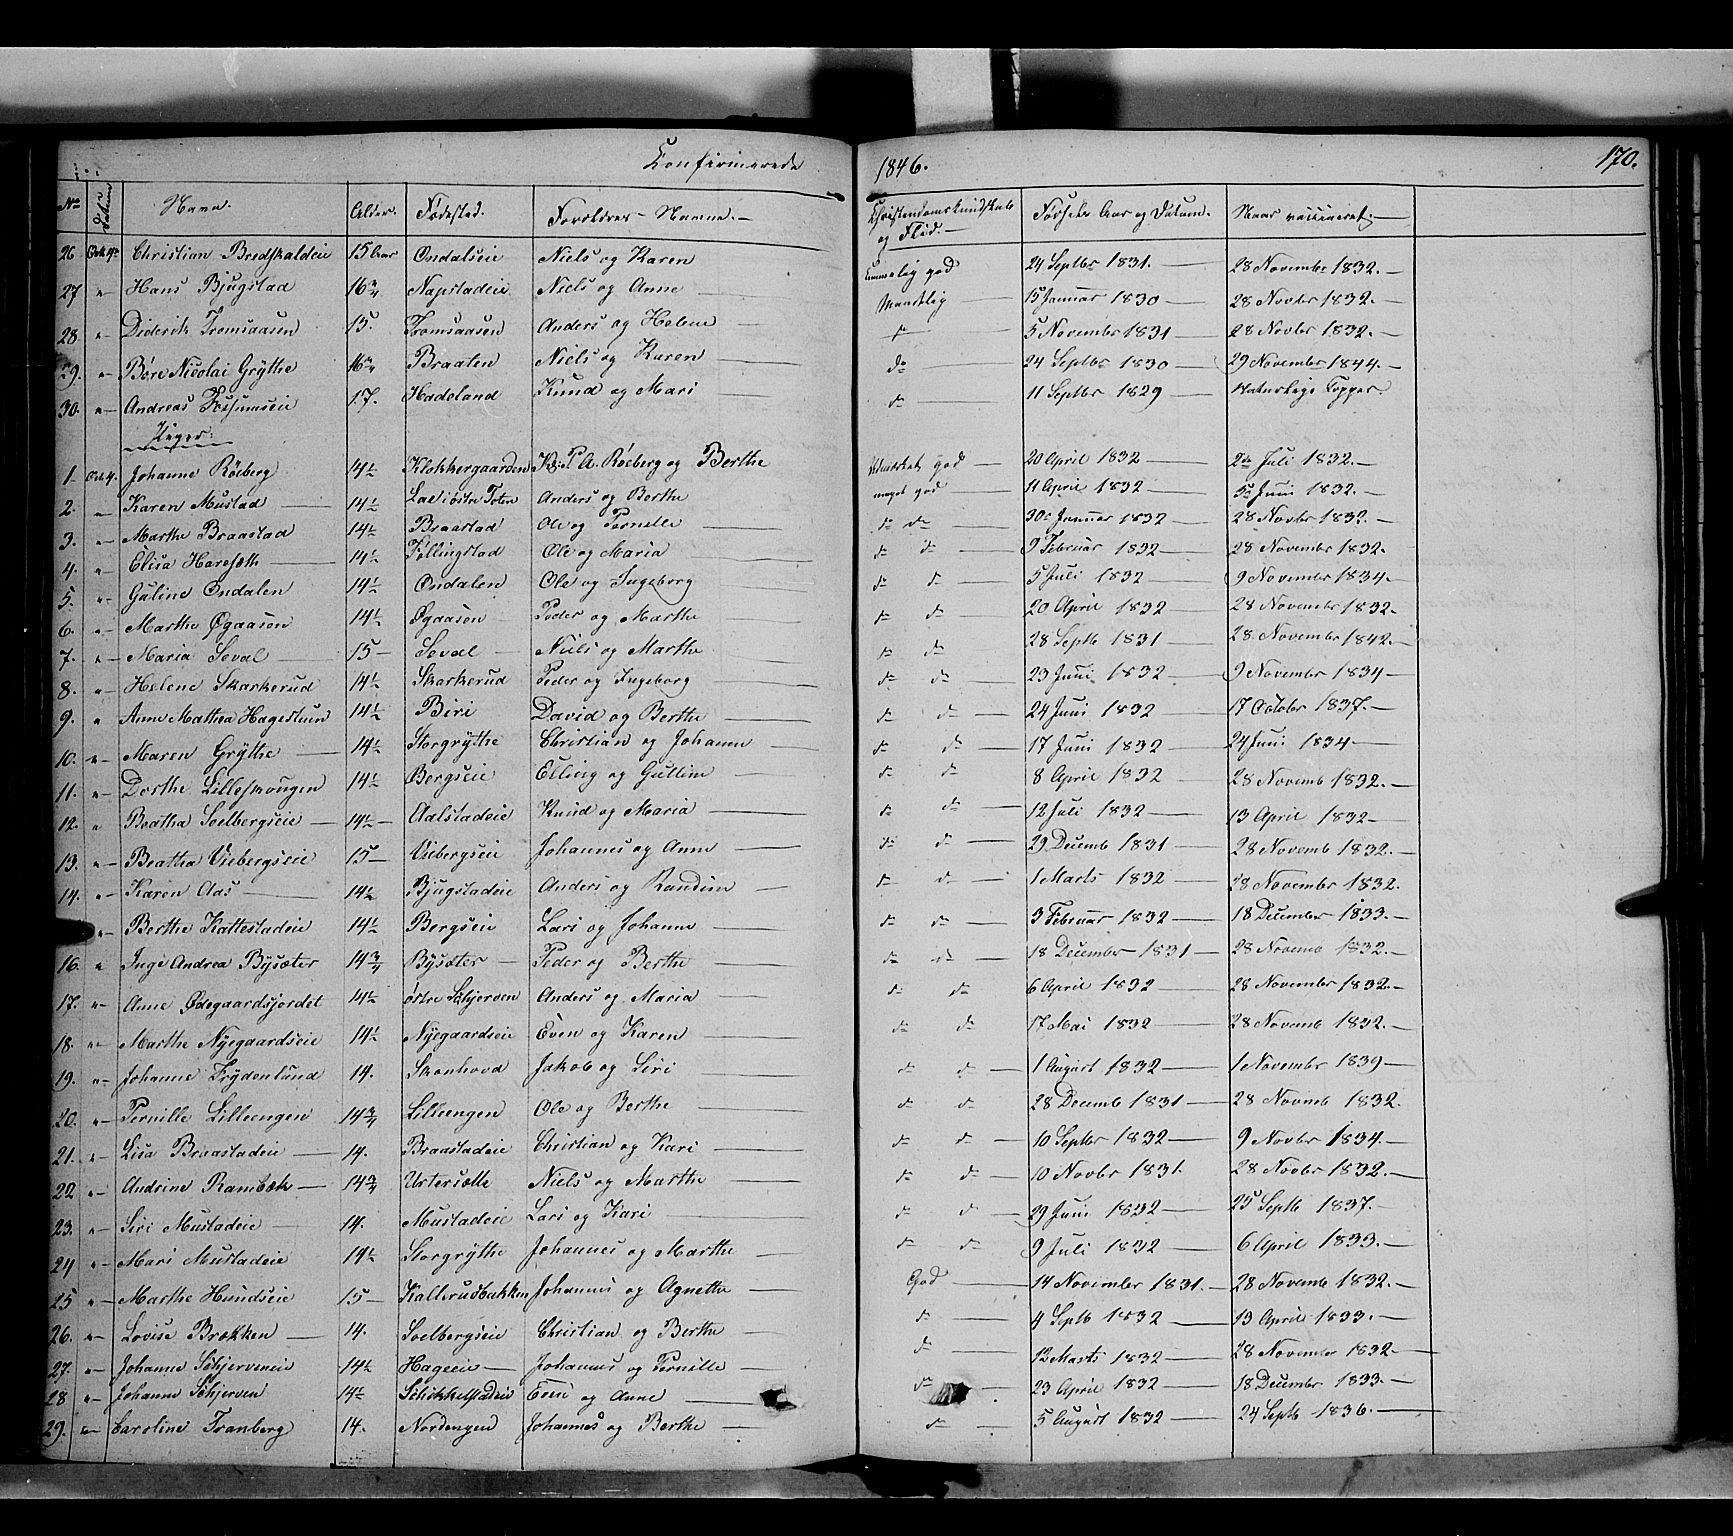 Confirmerede 1846. 170.
No Datum Navn. Alder. Fødested. Forældres Navne. Christendomskundskab og Flid. Fødsels Aar og Datum. Naar vaccineret.
26 Christian Bredskaldeie 15 Aar Ondalseie Niels og Karen Temmelig god 24 Septbr 1831. 28 November 1832.
27 " Hans Bjugstad 16 Napstadeie Niels og Anne Maadelig 15 Januar 1830 28 Novbr 1832.
28. " Diderik Tromsaasen 15. Tromsaasen Anders og Helene d= 5 November 1831 28 Novbr 1832.
29. " Børe Nicolai Grythe 16 3/4 Braaten Niels og Karen do 24 Septbr 1830 29 November 1844.
30. " Andreas Fossumseie 17. Hadeland Knud og Mari d= 11 Septbr 1829 Naturlige Kopper.
Piger:
1 Oct. 4. Johanne Røeberg 14½ Klokkergaarden P. A. Røeberg og Berthe god 20 April 1832 2 Juli 1832.
2. " Karen Mustad 14½ østre Toten Anders og Berthe meget god 11 April 1832 5 Juni 1832.
3. " Marthe Braastad 14½ Braastad Ole og Pernille d= d= 30 Januar 1832 28 Novbr 1832.
4. " Elisa Haresæth 14½ Fillingstad Ole og Maria d= d= 9 Februar 1832 28 November 1832.
5. " Guline Ondalen 14½ Ondalen Ole og Ingeborg d= d= 5 Juli 1832 9 November 1834.
6. " Marthe Øgaasen 14½ Øgaasen Peder og Marthe d= d= 20 April 1832 28 November 1832.
7. " Maria Seval 15 Seval Niels og Marthe d= d= 28 Septb 1831 28 November 1842.
8. " Helene Skarkerud 14½ Skarkerud Peder og Ingeborg d= d= 23 Juni 1832 9 November 1834
9. " Anne Mathea Hagestuen 14½ Biri David og Berthe d= d= 24 Juni 1832 17 October 1837.
10. " Maren Grythe 14½ Storgrythe Christian og Johanne d= d= 17 Juni 1832 24 Juni 1834
11. " Dorthe Lilleskougen 14½ Bergseie Elling og Gulline d= d= 8 April 1832 28 Novemb 1832.
12. " Beatha Soelbergseie 14½ Aalstadeie Knud og Maria d= d= 12 Juli 1832 13 April 1832
13. " Beatha Viebergseie 15 Viebergseie Johannes og Anne d= d= 29 Decemb 1831 28 Novemb 1832.
14. " Karen Aas 14½ Bjugstadeie Anders og Randine d= d= 1 Marts 1832 28 November 1832.
" Berthe Kattestadeie 14½ Bergseie Lars og Johanne d= d= 3 Februar 1832 18 December 1833.
16. " Inge Andrea Bysæter 14¾ Bysæter Peder og Berthe d= d= 18 December 1831 28 Novemb 1832.
17. " Anne Ødegaardsjordet 14½ østre Skjerven Anders og Maria d= d= 6 April 1832 28 November 1832.
18. " Marthe Nygaardseie 14½ Nyegaardseie Even og Karen d= d= 17 Mai 1832 28 Novemb 1832.
19. " Johanne Frydenlund 14. Skonhovd Jakob og Siri d= d= 1 August 1832 1 November 1839
20. " Pernille Lilleengen 14¾ Lilleengen Ole og Berthe d= d= 28 Decemb 1831 28 Novemb 1832.
21. " Lisa Braastadeie 14. Braastadeie Christian og Kari d= d= 10 Septbr 1832 9 Novbr 1834.
22 " Andrine Rambæk 14¾ Ursersætte Niels og Marthe d= d= 10 Novbr 1831. 28 Novbr 1832.
23. " Siri Mustadeie 14. Mustadeie Lars og Kari d= d= 29 Juni 1832 25 Septb 1837.
24 " Mari Mustadeie 14½ Storgrythe Johannes og Marthe d= d= 9 Juli 1832 6 April 1833.
25 " Marthe Hundseie 15 Kallerudbakken Johannes og Agnethe God 14 November 1831. 28 Novemb 1832.
26. " Lovise Brækken 14. Soelbergseie Christian og Berthe d= 4 Septb 1832 13 April 1833.
27. " Johanne Skjerveneie 14½ Hageeie Johannes og Pernille d= 12 Marts 1832 28 November 1832.
28 " Johanne Skjerven 14½ Skikkelstadeie Even og Anne d= 23 April 1832 18 December 1833.
29. " Caroline Tranberg 14. Nordengen Johannes og Berthe d= 5 August 1832 24 Septb 1836.